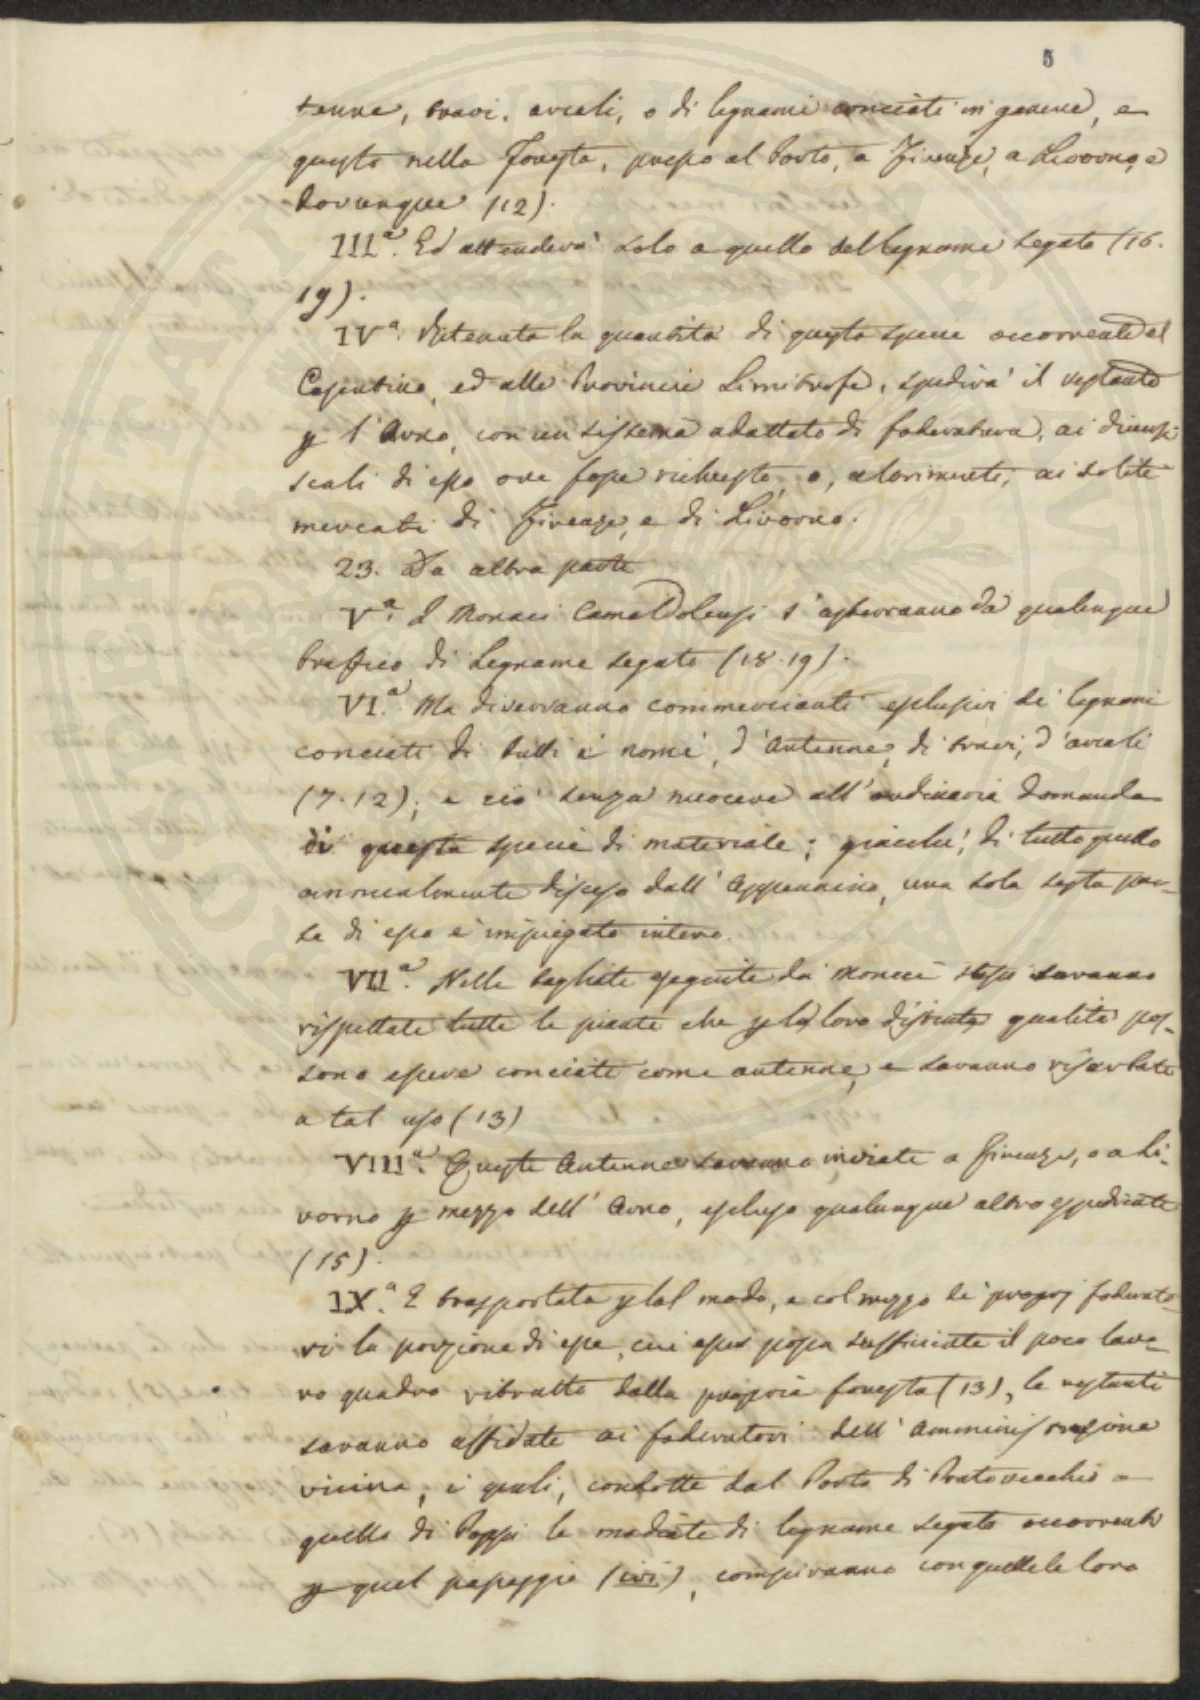 5
tenne, travi, arcali, o di legnami conciati in genere, e
questo nella Foresta, presso al Porto, a Firenze, a Livorno, e
dovunque (12).
IIIª. Ed attenderà solo a quello del legname segato (16.
19).
IVª. Ritenuta la quantità di questa specie occorrente al
Casentino, ed alle Provincie Limitrofe, spedirà il restante
p l'Arno, con un sistema adattato di foderatura, ai diversi
scali di esso ove fosse richiesto, o, altrimenti, ai soliti
mercati di Firenze, e di Livorno.
23. Da altra parte
Vª. I Monaci Camaldolensi s'asterranno da qualunque
traffico di Legname segato (18.19).
VIª. Ma diverranno commercianti esclusivi di legnami
conciati di tutti i nomi, d'Antenne, di travi, d'arcali
(7.12); e ciò senza nuocere all'ordinaria domanda
di questa specie di materiale; giacchè, di tutto quello
annualmente disceso dall'Appennino, una sola sesta par-
te di esso è impiegato intero.
VIIª. Nelle tagliate eseguite da' Monaci stessi saranno
rispettate tutte le piante che p la loro distinta qualità pos-
sono essere conciate come antenne, e saranno riserbate
a tal uso (13)
VIIIª. Queste Antenne saranno inviate a Firenze, o a Li-
vorno p mezzo dell'Arno, escluso qualunque altro espediente
(15).
IXª. E trasportata p tal modo, e col mezzo de' proprj foderato-
ri la porzione di esse, cui esser possa sufficiente il poco lavo-
ro quadro ritratto dalla propria foresta (13), le restanti
saranno affidate ai foderatori dell'Amministrazione
vicina, i quali, condotte dal Porto di Pratovecchio a
quello di Poppi le modiate di legname segato occorrenti
p quel passaggio (ivi), compiranno con quelle le loro